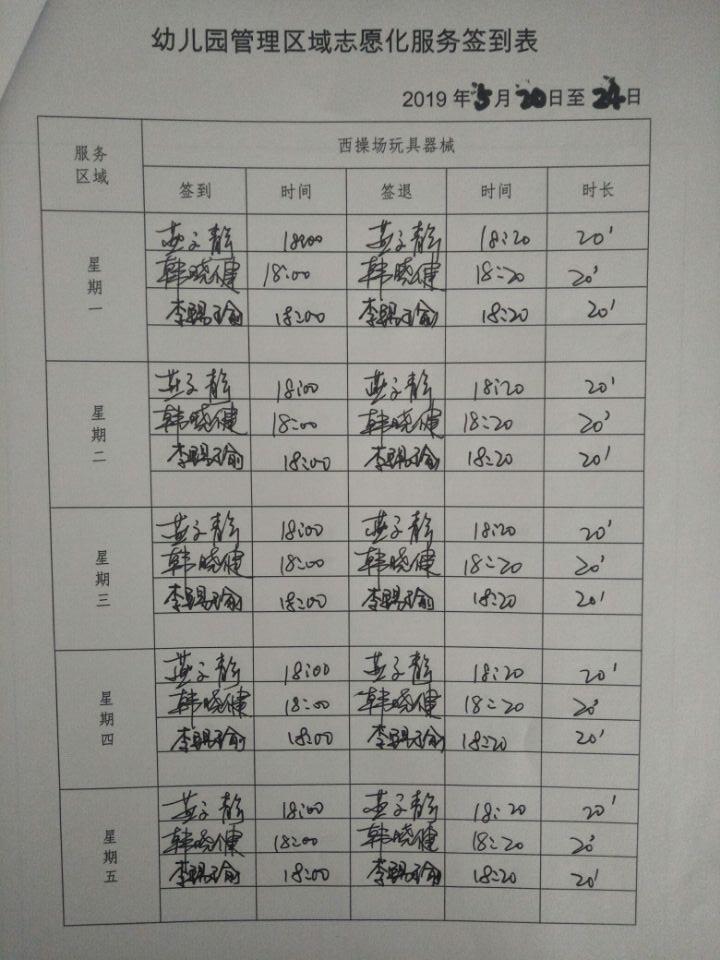 幼儿园管理区域志愿化服务签到表
2019 年 5 月 20 日至 24 日
服务区域 西操场玩具器械
签到 时间 签退 时间 时长
星期一
燕子静 18:00 燕子静 18:20 20'
韩晓健 18:00 韩晓健 18:20 20'
李赐瑜 18:00 李赐瑜 18:20 20'
星期二
燕子静 18:00 燕子静 18:20 20'
韩晓健 18:00 韩晓健 18:20 20'
李赐瑜 18:00 李赐瑜 18:20 20'
星期三
燕子静 18:00 燕子静 18:20 20'
韩晓健 18:00 韩晓健 18:20 20'
李赐瑜 18:00 李赐瑜 18:20 20'
星期四
燕子静 18:00 燕子静 18:20 20'
韩晓健 18:00 韩晓健 18:20 20'
李赐瑜 18:00 李赐瑜 18:20 20'
星期五
燕子静 18:00 燕子静 18:20 20'
韩晓健 18:00 韩晓健 18:20 20'
李赐瑜 18:00 李赐瑜 18:20 20'